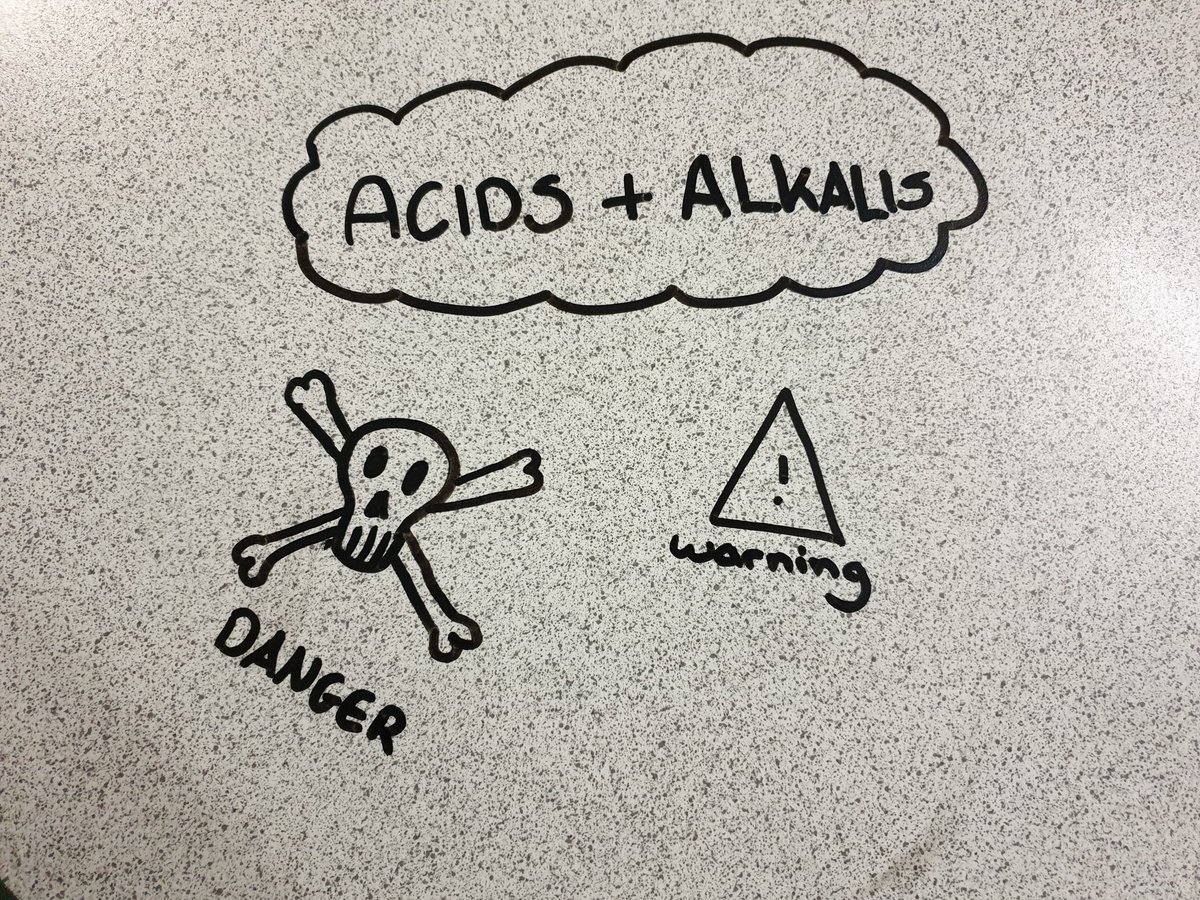 ACIDS + ALKALIS
!
warning
DANGER